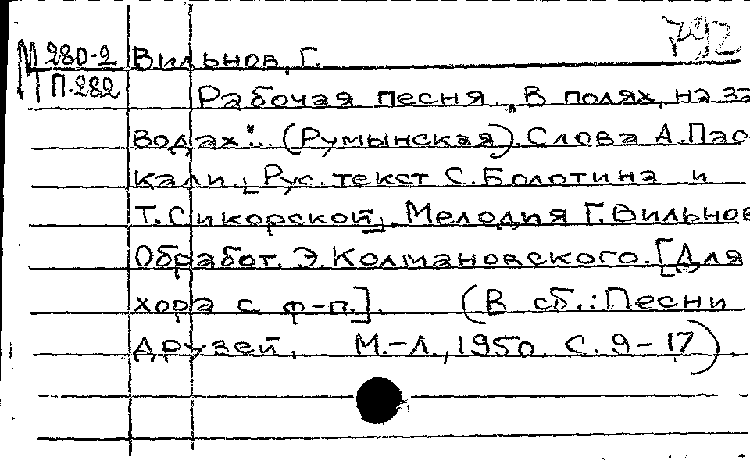 792
М 280-2
П.282
Вильнов, Г.
Рабочая песня „В полях, на за
водах“. (Румынская). Слова А. Пас
кали. [Рус. текст С. Болотина и
Т. Сикорской]. Мелодия Г. Вильнов
Обработ. Э. Колмановского. [Для
хора с ф-п.]. (В сб.: Песни
друзей. М.-Л., 1950. С. 9-17).